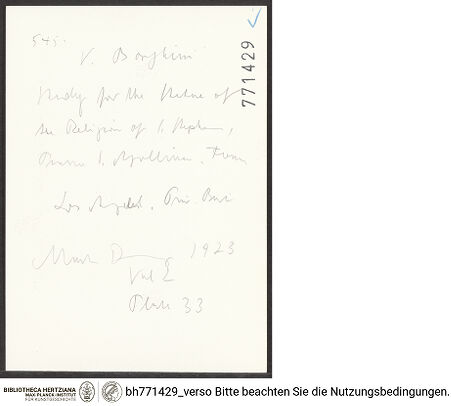 545.
V. Borghini
771429
Study for the Statue of
the Religion of S. Stephen,
S. Apollinare.
Los Angeles. Priv.
1923
Vol 2
Plate 33
BIBLIOTHECA HERTZIANA
MAX-PLANCK-INSTITUT
FÜR KUNSTGESCHICHTE
bh771429_verso Bitte beachten Sie die Nutzungsbedingungen.